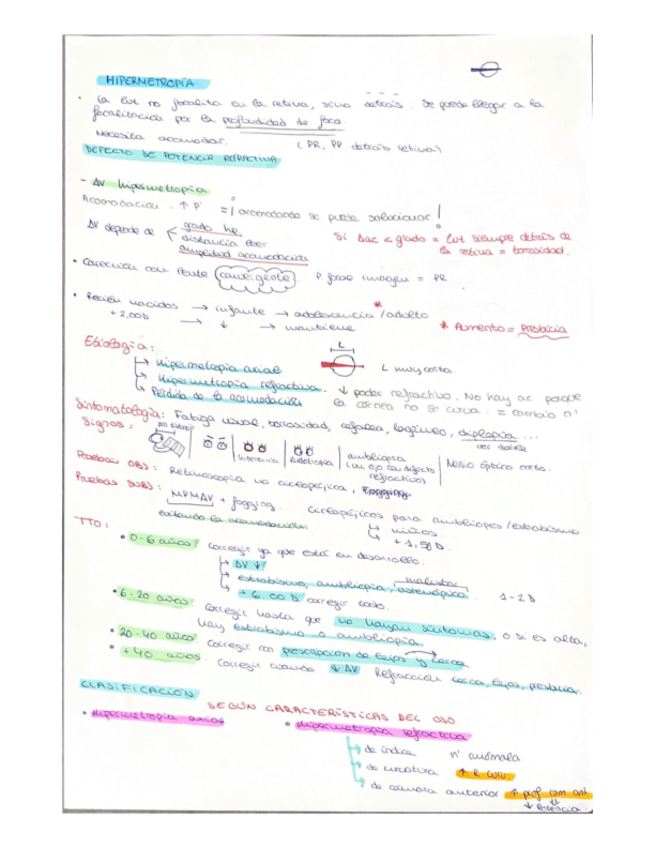 HIPERMETROPÍA
• La luz no focaliza en la retina, sino detrás. Se puede llegar a la
focalización por la profundidad de foco.
Necesita acomodar. (PR, PP detrás retina)
DEFECTO DE POTENCIA REFRACTIVA
- AV hipermetropía
Acomodación. ↑ P' = ¡acomodando se puede solucionar!
AV depende de < grado hp
distancia
amplitud acomodación
Si Dac < grado = luz siempre detrás de
la retina = borrosidad.
• Corrección con lente convergente. P focal imagen = PR
• Recién nacidos → infante → adolescencia / adulto *
+ 2,00D → ↓ → mantiene
* Aumento = Presbicia
Etiología:
L
Hipermetropía axial
L muy corta
Hipermetropía refractiva.
↓ poder refractivo. No hay ac porque
Pérdida de la acomodación
la córnea no se curva. = cambio n'
Sintomatología: Fatiga visual, borrosidad, cefalea, lagrimeo, diplopia ....
ver doble
Signos:
ambliopía
(un ojo con defecto
refractivo)
Nervio óptico corto.
Pruebas OBJ: Retinoscopia no ciclopéjica,
Pruebas SUBJ: MPMAV + fogging. Ciclopéjicos para ambliopes / estrabismo
evitando la acomodación
↳ niños.
↳ + 1,50 D.
TTO:
• 0-6 años: Corregir ya que está en desarrollo.
AV ↓
malestar
estrabismo, ambliopía, astenópica. 1-2 D
+ 6.00 D corregir todo.
• 6-20 años: Corregir hasta que no hayan síntomas, o si es alta,
hay estrabismo o ambliopía.
• 20-40 años: Corregir con prescripción de lejos y cerca
• + 40 años. Corregir cuando ↓ AV Refracción cerca, lejos, presbicia.
CLASIFICACIÓN
SEGÚN CARACTERÍSTICAS DEL OJO
• Hipermetropía axial
• Hipermetropía refractiva
de índice n' anómala
de curvatura ↑ R curv
de cámara anterior ↑ prof cam ant.
↓ Potencia.